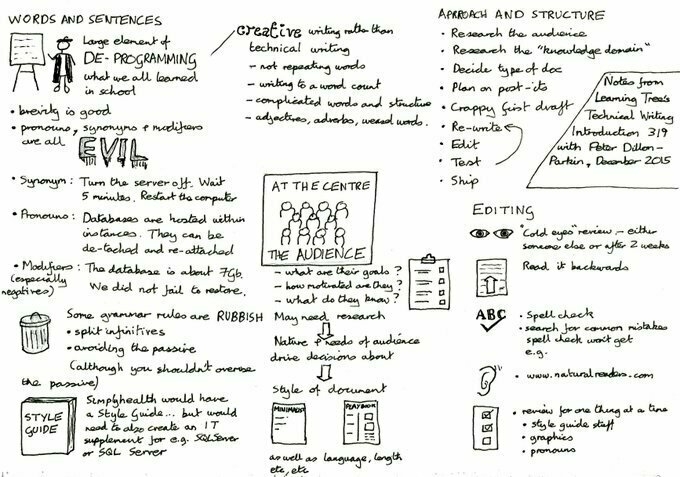 WORDS AND SENTENCES
Large element of
DE-PROGRAMMING
what we all learned
in school
• brevity is good
• pronouns, synonyms + modifiers
are all EVIL
• Synonym: Turn the server off. Wait
5 minutes. Restart the computer
• Pronoun: Databases are hosted within
instances. They can be
de-tached and re-attached
• Modifiers: The database is about 7Gb.
(especially
negatives)
We did not fail to restore.
Some grammar rules are RUBBISH
• split infinitives
• avoiding the passive
(although you shouldn't overuse
the passive)
STYLE
GUIDE
Simplyhealth would have
a Style Guide... but would
need to also create an IT
supplement for e.g. SQLServer
or SQL Server
creative writing rather than
technical writing
- not repeating words
- writing to a word count
- complicated words and structure
- adjectives, adverbs, weasel words.
AT THE CENTRE
THE AUDIENCE
- what are their goals?
- how motivated are they?
- what do they know?
May need research
Nature + needs of audience
drive decisions about
Style of document
MINIMALIST
PLAYBOOK
as well as language, length
etc, etc
APPROACH AND STRUCTURE
• Research the audience
• Research the "knowledge domain"
• Decide type of doc
• Plan on post-its
• Crappy first draft
• Re-write
• Edit
• Test
• Ship
Notes from
Learning Tree's
Technical Writing
Introduction 319
with Peter Dillon-
Parkin, December 2015
EDITING
"Cold eyes" review - either
someone else or after 2 weeks
Read it backwards
ABC
• Spell check
• search for common mistakes
spell check won't get
e.g.
• www.naturalreaders.com
• review for one thing at a time
• style guide stuff
• graphics
• pronouns